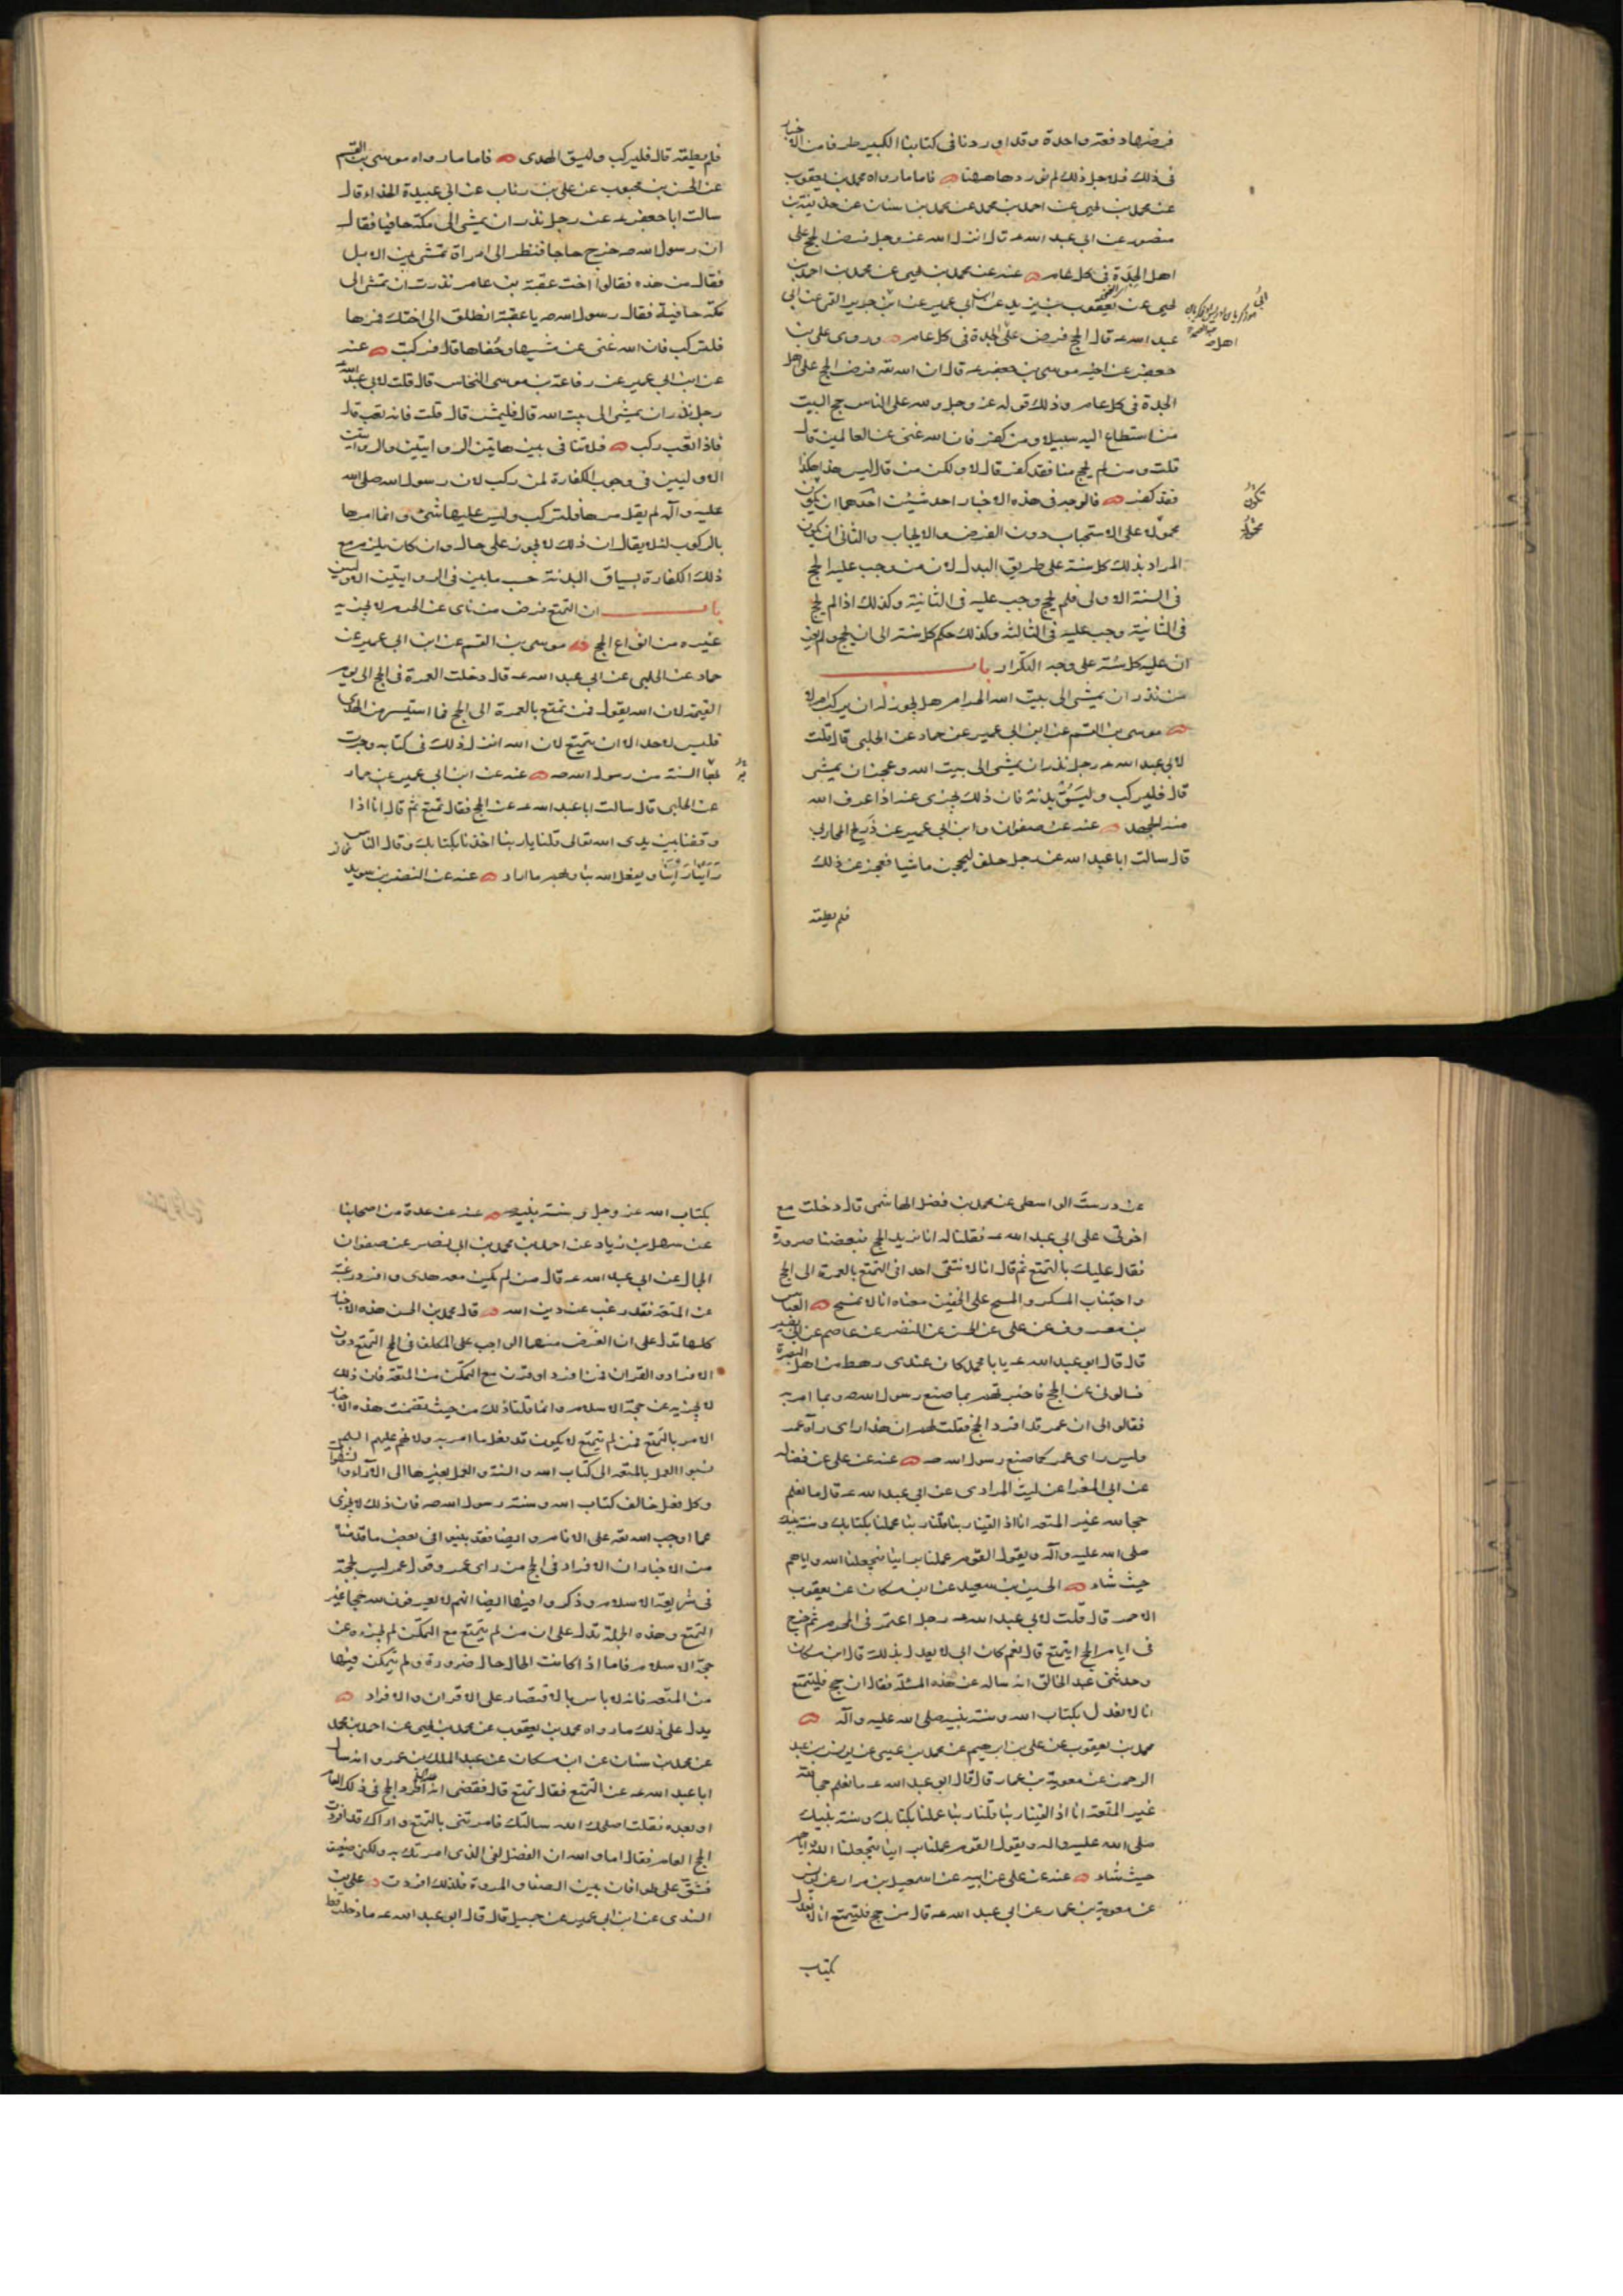 فرضها دفعة واحدة وقد اوردنا فى كتابنا الكبير طرفا من الاخبار
فى ذلك فلاجل ذلك لم نوردها ههنا فاما ما رواه محمد بن يعقوب
عن محمد بن يحيى عن احمد بن محمد عن محمد بن سنان عن حذيفة بن
منصور عن ابى عبد الله عـ قال انزل الله عز وجل فرض الحج على
اهل الجدة فى كل عام عنه عن محمد بن يحيى عن محمد بن احمد بن
يحيى عن يعقوب بن يزيد عن ابن ابى عمير عن ابى جرير القمى عن ابى
عبد الله عـ قال الحج فرض على اهل الجدة فى كل عام وروى على بن
جعفر عن اخيه موسى بن جعفر عـ قال ان الله تعـ فرض الحج على اهل
الجدة فى كل عام وذلك قوله عز وجل ولله على الناس حج البيت
من استطاع اليه سبيلا ومن كفر فان الله غنى عن العالمين قال
قلت ومن لم يحج منا فقد كفر قال لا ولكن من قال ليس هذا هكذا
فقد كفر فالوجه فى هذه الاخبار احد شيئين احدهما ان يكون
محموله على الاستحباب دون الفرض والايجاب والثانى ان يكون
المراد بذلك كل سنة على طريق البدل لان من وجب عليه الحج
فى السنة الاولى فلم يحج وجب عليه فى الثانية وكذلك اذا لم يحج
فى الثانية وجب عليه فى الثالثه وكذلك حكم كل سنة الى ان يحج ولم يعن
ان عليه كل سنة على وجه التكرار باب
من نذر ان يمشى الى بيت الله الحرام هل يجوز له ان يركب ام لا
موسى بن القسم عن ابن ابى عمير عن حماد عن الحلبى قال قلت
لابى عبد الله عـ رجل نذر ان يمشى الى بيت الله وعجز ان يمشى
قال فليركب وليسق بدنة فان ذلك يجزى عنه اذا عرف الله
منه الجهد عنه عن صفوان وابن ابى عمير عن ذريح المحاربى
قال سالت ابا عبد الله عن رجل حلف ليحجن ماشيا فعجز عن ذلك
فلم يطقه
تكون
محمولة
فلم يطقه قال فليركب وليسق الهدى فاما ما رواه موسى بن القسم
عن الحسن بن محبوب عن على بن رئاب عن ابى عبيدة الحذاء قال
سالت ابا جعفر عـ عن رجل نذر ان يمشى الى مكة حافيا فقال
ان رسول الله صـ خرج حاجا فنظر الى امراة تمشى بين الابل
فقال من هذه فقالوا اخت عقبة بن عامر نذرت ان تمشى الى
مكة حافية فقال رسول الله صـ يا عقبة انطلق الى اختك فمرها
فلتركب فان الله غنى عن مشيها وحفاها قال فركبت عنه
عن ابن ابى عمير عن رفاعة بن موسى النخاس قال قلت لابى عبد الله
رجل نذر ان يمشى الى بيت الله قال فليمش قال قلت فانه تعب قال
فاذا تعب ركب فلا تنافى بين هاتين الروايتين والروايتين
الاوليين فى وجوب الكفارة لمن ركب لان رسول الله صلى الله
عليه وآله لم يقل مرها فلتركب وليس عليها شئ وانما امرها
بالركوب لئلا يقال ان ذلك لا يجوز على حال وان كان يلزم مع
ذلك الكفارة بسياق البدنة حسب ما بين فى الروايتين الاوليين
باب ان التمتع فرض من ناى عن الحرم لا يجزيه
غيره من انواع الحج موسى بن القسم عن ابن ابى عمير عن
حماد عن الحلبى عن ابى عبد الله عـ قال دخلت العمرة فى الحج الى يوم
القيمة لان الله يقول فمن تمتع بالعمرة الى الحج فما استيسر من الهدى
فليس لاحد الا ان يتمتع لان الله انزل ذلك فى كتابه وجرت
بها السنة من رسول الله صـ عنه عن ابن ابى عمير عن حماد
عن الحلبى قال سالت ابا عبد الله عـ عن الحج فقال تمتع ثم قال انا اذا
وقفنا بين يدى الله تعالى قلنا يا ربنا اخذنا بكتابك وقال الناس
راينا راينا ويفعل الله بنا وبهم ما اراد عنه عن النضر بن سويد
عن درست الواسطى عن محمد بن فضل الهاشمى قال دخلت مع
اخوتى على ابى عبد الله عـ فقلنا له انا نريد الحج فبعضنا صرورة
فقال عليك بالتمتع ثم قال انا لا نتقى احدا فى التمتع بالعمرة الى الحج
واجتناب المسكر والمسح على الخفين معناه انا لا نمسح العباس
بن معروف عن على عن الحسن عن النضر عن عاصم عن ابى بصير
قال قال ابو عبد الله عـ يا با محمد كان عندى رهط من اهل البصرة
فسالونى عن الحج فاخبرتهم بما صنع رسول الله صـ وبما امر به
فقالوا لى ان عمر قد افرد الحج فقلت لهم ان هذا راى رآه عمر
وليس راى عمر كما صنع رسول الله صـ عنه عن على عن فضاله
عن ابى المغرا عن ليث المرادى عن ابى عبد الله عـ قال ما نعلم
حجا لله غير المتعه انا اذا لقينا ربنا قلنا ربنا عملنا بكتابك وسنة نبيك
صلى الله عليه وآله ويقول القوم عملنا براينا فيجعلنا الله واياهم
حيث شاء الحسين بن سعيد عن ابن مسكان عن يعقوب
الاحمر قال قلت لابى عبد الله عـ رجل اعتمر فى المحرم ثم خرج
فى ايام الحج ايتمتع قال نعم كان ابى لا يعدل بذلك قال ابن مسكان
وحدثنى عبد الخالق انه ساله عن هذه المسئلة فقال ان حج فليتمتع
انا لا نعدل بكتاب الله وسنة نبيه صلى الله عليه وآله
محمد بن يعقوب عن على بن ابرهيم عن محمد بن عيسى عن يونس بن عبد
الرحمن عن معوية بن عمار قال قال ابو عبد الله عـ ما نعلم حجا لله
غير المتعة انا اذا لقينا ربنا قلنا ربنا عملنا بكتابك وسنة نبيك
صلى الله عليه واله ويقول القوم عملنا براينا فيجعلنا الله واياهم
حيث شاء عنه عن على عن ابيه عن اسمعيل بن مرار عن يونس
عن معوية بن عمار عن ابى عبد الله عـ قال من حج فليتمتع انا لا نعدل
بكتاب
بكتاب الله عز وجل وسنة نبيه صـ عنه عن عدة من اصحابنا
عن سهل بن زياد عن احمد بن محمد بن ابى نصر عن صفوان
الجمال عن ابى عبد الله عـ قال من لم يكن معه هدى وافرد رغبة
عن المتعة فقد رغب عن دين الله قال محمد بن الحسن هذه الاخبار
كلها تدل على ان الفرض منها الواجب على المكلف فى الحج التمتع دون
الافراد والقران فمن افرد او قرن مع التمكن من المتعة فان ذلك
لا يجزيه عن حجة الاسلام وانما قلنا ذلك من حيث تضمنت هذه الاخبار
الامر بالتمتع فمن لم يتمتع لا يكون قد فعل ما امر به ولانهم عليهم السلم
نسبوا العمل بالمتعه الى كتاب الله والسنة والعمل بغيرها الى الآراء والشهوات
وكل فعل خالف كتاب الله وسنة رسول الله صـ فان ذلك لا يجزى
عما اوجب الله تعـ على الانام وايضا فقد بينوا فى بعض ما قدمنا
من الاخبار ان الافراد فى الحج من راى عمر وقول عمر ليس بحجة
فى شريعة الاسلام وذكروا فيها ايضا انهم لا يعرفون لله حجا غير
التمتع وهذه الجملة تدل على ان من لم يتمتع مع التمكن لم يجزه عن
حجة الاسلام فاما اذا كانت الحال حال ضرورة ولم يتمكن فيها
من المتعه فانه لا باس بالاقتصار على الاقران والافراد
يدل على ذلك ما رواه محمد بن يعقوب عن محمد بن يحيى عن احمد بن محمد
عن محمد بن سنان عن ابن مسكان عن عبد الملك بن عمرو انه سال
ابا عبد الله عـ عن التمتع فقال تمتع قال فقضى انه افرد الحج فى ذلك العام
او بعده فقلت اصلحك الله سالتك فامرتنى بالتمتع واراك قد افردت
الحج العام فقال اما والله ان الفضل لفى الذى امرتك به ولكنى ضعيف
فشق على طوافان بين الصفا والمروة فلذلك افردت على بن
السندى عن ابن ابى عمير عن جميل قال قال ابو عبد الله عـ ما دخلت قط